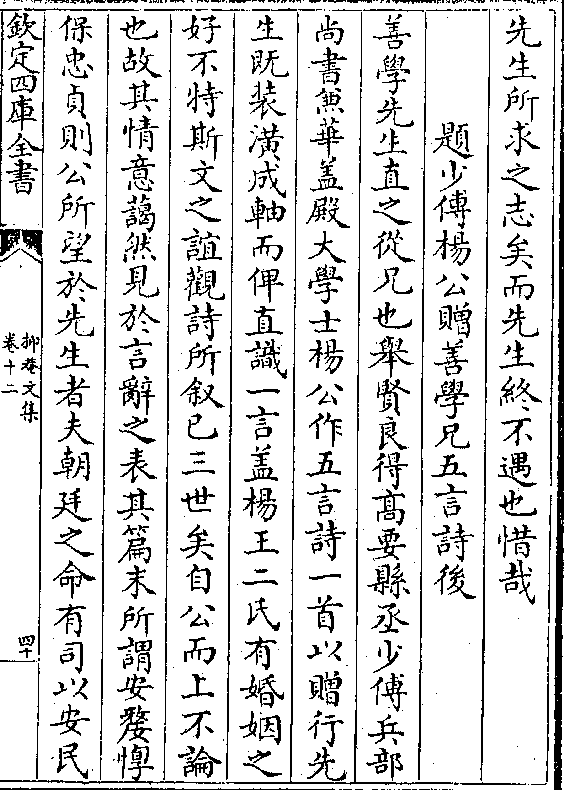 先生所求之志矣而先生終不遇也惜哉
題少傅楊公贈善學兄五言詩後
善學先生直之從兄也舉賢良得高要縣丞少傅兵部
尚書兼華盖殿大學士楊公作五言詩一首以贈行先
生既裝潢成軸而俾直識一言盖楊王二氏有婚姻之
好不特斯文之誼觀詩所叙已三世矣自公而上不論
也故其情意藹然見於言辭之表其篇末所謂安嫠惸
保忠貞則公所望於先生者夫朝廷之命有司以安民
欽定四庫全書
抑菴文集
卷十二
四十